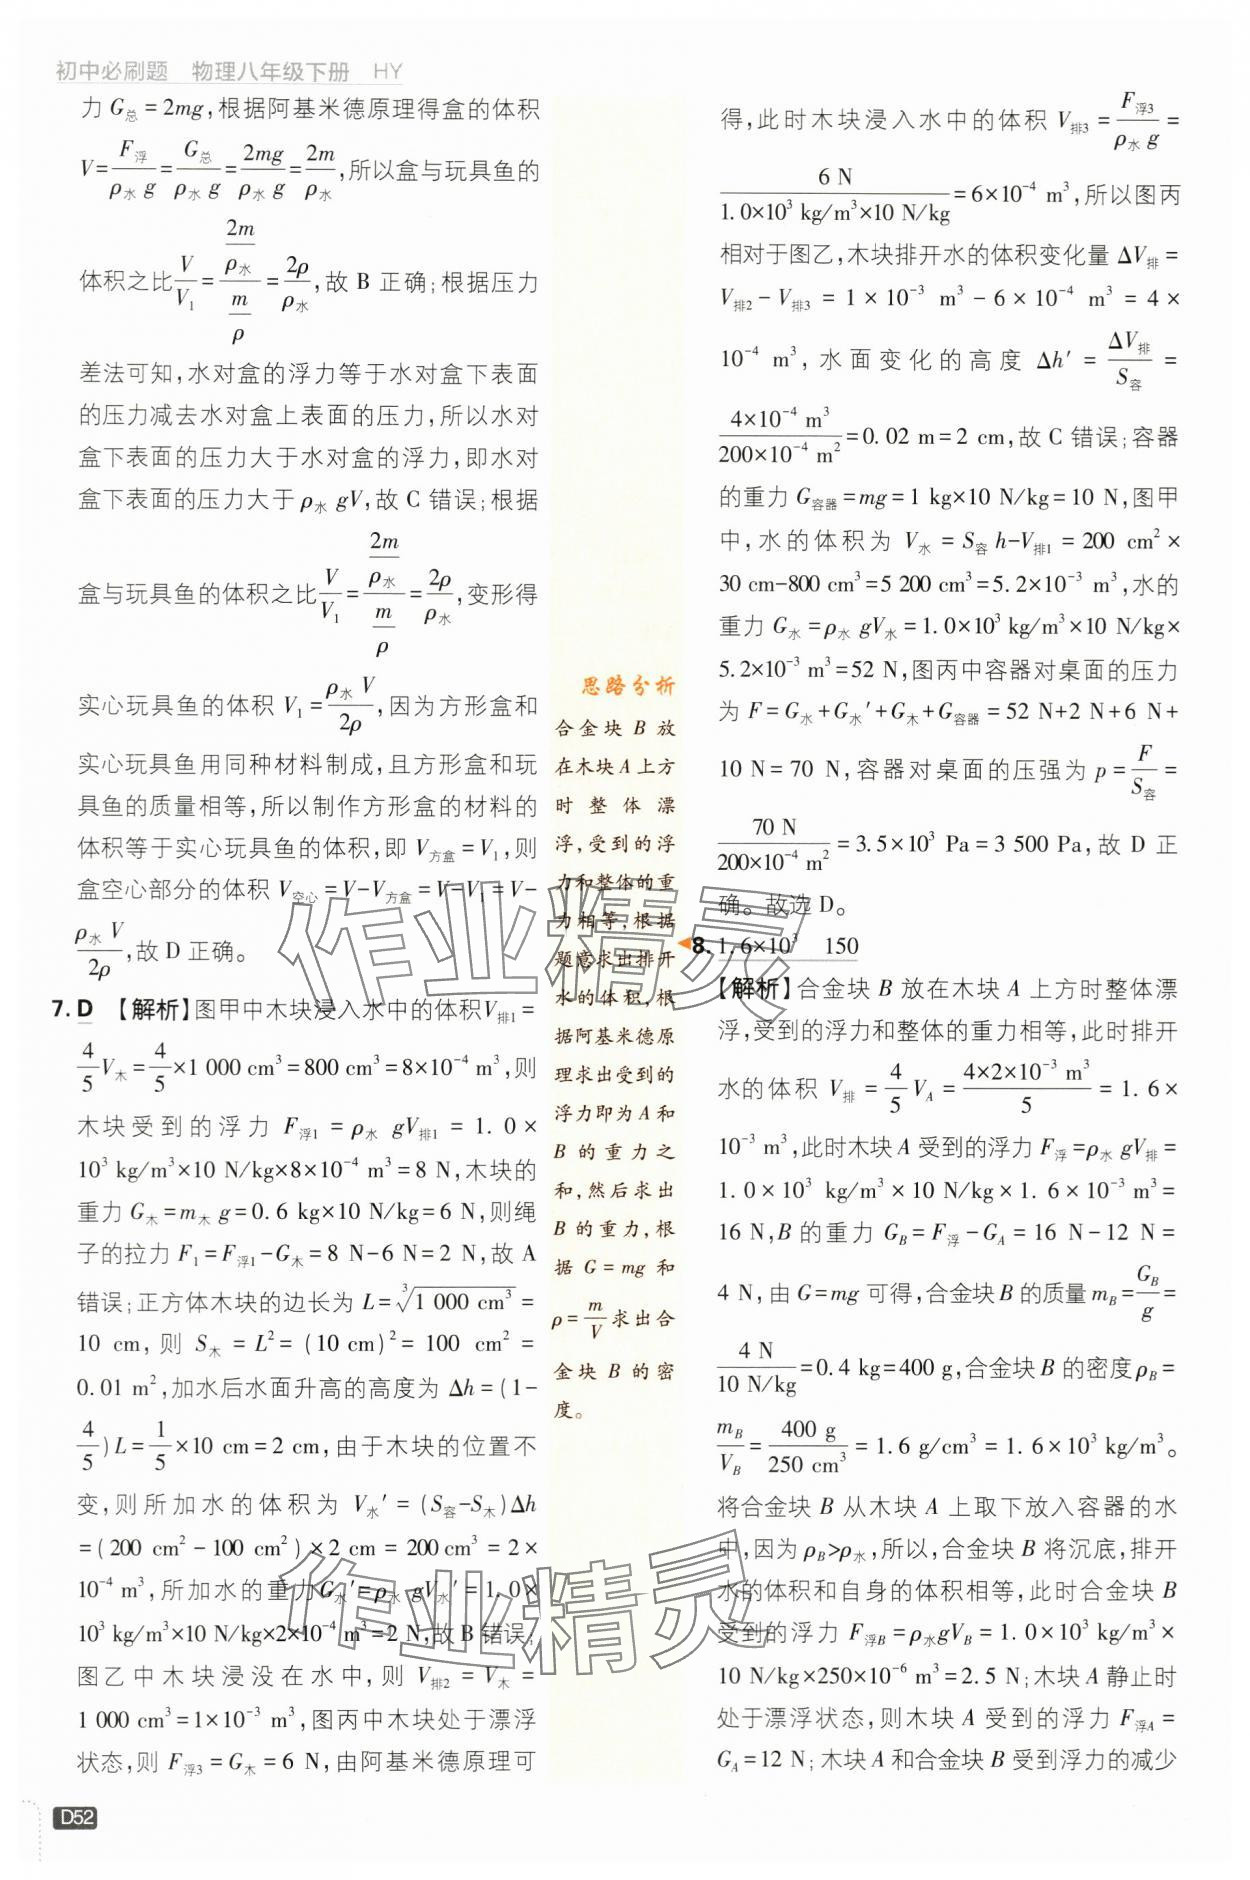 初中必刷题 物理八年级下册 HY
力 G总=2mg,根据阿基米德原理得盒的体积
V=F浮/(ρ水 g)=G总/(ρ水 g)=2mg/(ρ水 g)=2m/ρ水,所以盒与玩具鱼的
体积之比V/V₁=(2m/ρ水)/(m/ρ)=2ρ/ρ水,故 B 正确;根据压力
差法可知,水对盒的浮力等于水对盒下表面
的压力减去水对盒上表面的压力,所以水对
盒下表面的压力大于水对盒的浮力,即水对
盒下表面的压力大于 ρ水 gV,故 C 错误;根据
盒与玩具鱼的体积之比V/V₁=(2m/ρ水)/(m/ρ)=2ρ/ρ水,变形得
实心玩具鱼的体积 V₁=ρ水 V/2ρ,因为方形盒和
实心玩具鱼用同种材料制成,且方形盒和玩
具鱼的质量相等,所以制作方形盒的材料的
体积等于实心玩具鱼的体积,即 V方盒=V₁,则
盒空心部分的体积 V空心=V-V方盒=V-V₁=V-
ρ水 V/2ρ,故 D 正确。
7. D 【解析】图甲中木块浸入水中的体积V排1=
4/5V木=4/5×1 000 cm³=800 cm³=8×10⁻⁴ m³,则
木块受到的浮力 F浮1=ρ水 gV排1=1.0×
10³ kg/m³×10 N/kg×8×10⁻⁴ m³=8 N,木块的
重力 G木=m木 g=0.6 kg×10 N/kg=6 N,则绳
子的拉力 F₁=F浮1-G木=8 N-6 N=2 N,故 A
错误;正方体木块的边长为 L=∛(1 000 cm³)=
10 cm,则 S木=L²=(10 cm)²=100 cm²=
0.01 m²,加水后水面升高的高度为 Δh=(1-
4/5)L=1/5×10 cm=2 cm,由于木块的位置不
变,则所加水的体积为 V水′=(S容-S木)Δh
=(200 cm²-100 cm²)×2 cm=200 cm³=2×
10⁻⁴ m³,所加水的重力G水′=ρ水 gV水′=1.0×
10³ kg/m³×10 N/kg×2×10⁻⁴ m³=2 N,故B错误;
图乙中木块浸没在水中,则 V排2=V木=
1 000 cm³=1×10⁻³ m³,图丙中木块处于漂浮
状态,则 F浮3=G木=6 N,由阿基米德原理可
思路分析
合金块 B 放
在木块 A 上方
时整体漂
浮,受到的浮
力和整体的重
力相等,根据
题意求出排开
水的体积,根
据阿基米德原
理求出受到的
浮力即为 A 和
B 的重力之
和,然后求出
B 的重力,根
据 G=mg 和
ρ=m/V求出合
金块 B 的密
度。
得,此时木块浸入水中的体积 V排3=F浮3/(ρ水 g)=
6 N/(1.0×10³ kg/m³×10 N/kg)=6×10⁻⁴ m³,所以图丙
相对于图乙,木块排开水的体积变化量 ΔV排=
V排2-V排3=1×10⁻³ m³-6×10⁻⁴ m³=4×
10⁻⁴ m³,水面变化的高度 Δh′=ΔV排/S容=
4×10⁻⁴ m³/(200×10⁻⁴ m²)=0.02 m=2 cm,故 C 错误;容器
的重力 G容器=mg=1 kg×10 N/kg=10 N,图甲
中,水的体积为 V水=S容 h-V排1=200 cm²×
30 cm-800 cm³=5 200 cm³=5.2×10⁻³ m³,水的
重力 G水=ρ水 gV水=1.0×10³ kg/m³×10 N/kg×
5.2×10⁻³ m³=52 N,图丙中容器对桌面的压力
为 F=G水+G水′+G木+G容器=52 N+2 N+6 N+
10 N=70 N,容器对桌面的压强为 p=F/S容=
70 N/(200×10⁻⁴ m²)=3.5×10³ Pa=3 500 Pa,故 D 正
确。故选 D。
8. 1.6×10³ 150
【解析】合金块 B 放在木块 A 上方时整体漂
浮,受到的浮力和整体的重力相等,此时排开
水的体积 V排=4/5 V_A=4×2×10⁻³ m³/5=1.6×
10⁻³ m³,此时木块 A 受到的浮力 F浮=ρ水 gV排=
1.0×10³ kg/m³×10 N/kg×1.6×10⁻³ m³=
16 N,B 的重力 G_B=F浮-G_A=16 N-12 N=
4 N,由 G=mg 可得,合金块 B 的质量 m_B=G_B/g=
4 N/(10 N/kg)=0.4 kg=400 g,合金块 B 的密度 ρ_B=
m_B/V_B=400 g/250 cm³=1.6 g/cm³=1.6×10³ kg/m³。
将合金块 B 从木块 A 上取下放入容器的水
中,因为 ρ_B>ρ水,所以,合金块 B 将沉底,排开
水的体积和自身的体积相等,此时合金块 B
受到的浮力 F浮B=ρ水gV_B=1.0×10³ kg/m³×
10 N/kg×250×10⁻⁶ m³=2.5 N;木块 A 静止时
处于漂浮状态,则木块 A 受到的浮力 F浮A=
G_A=12 N;木块 A 和合金块 B 受到浮力的减少
D52
作业精灵
作业精灵